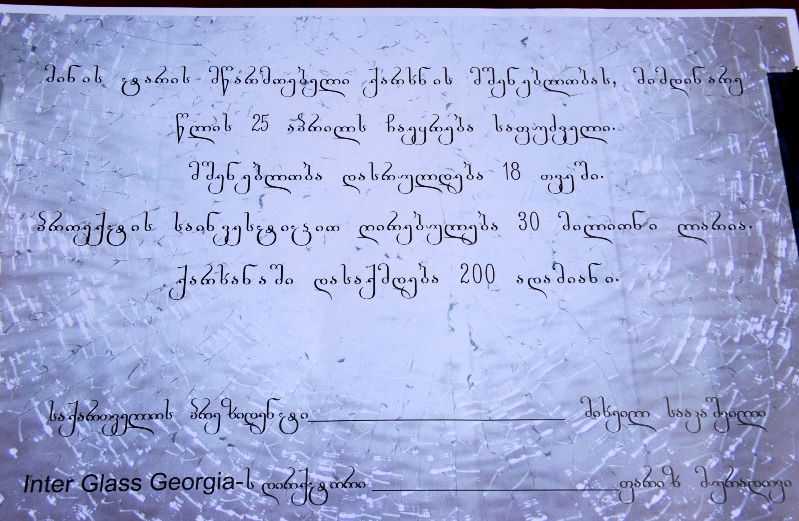 მინის ტარის მწარმოებელი ქარხნის მშენებლობას, მიმდინარე
წლის 25 აპრილს ჩაეყრება საფუძველი.
მშენებლობა დასრულდება 18 თვეში.
პროექტის საინვესტიციო ღირებულება 30 მილიონი ლარია.
ქარხანაში დასაქმდება 200 ადამიანი.
საქართველოს პრეზიდენტი__________________ მიხეილ სააკაშვილი
Inter Glass Georgia-ს დირექტორი __________________ფარიზ მურადოვი